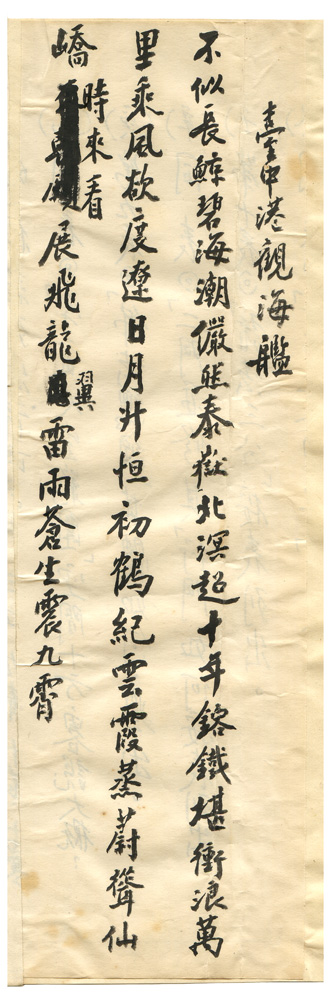 臺中港觀海艦
不似長鯨碧海潮儼然泰嶽北溟超十年鎔鐵堪衝浪萬
里乘風欲度遼日月升恒初鶴紀雲霞蒸蔚聳仙
嶠時來看展飛龍翼雷雨蒼生震九霄